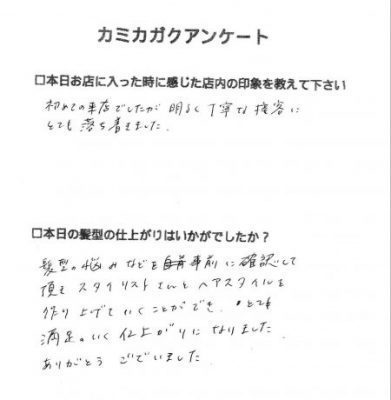 カミカガクアンケート
□本日お店に入った時に感じた店内の印象を教えて下さい
初めての来店でしたが 明るく丁寧な接客に
とても落ち着きました.
□本日の髪型の仕上がりはいかがでしたか？
髪型の悩みなどを事前に確認して
頂き スタイリストさんとヘアスタイルを
作り上げていくことができ、とても
満足のいく仕上がりになりました.
ありがとう ございました.